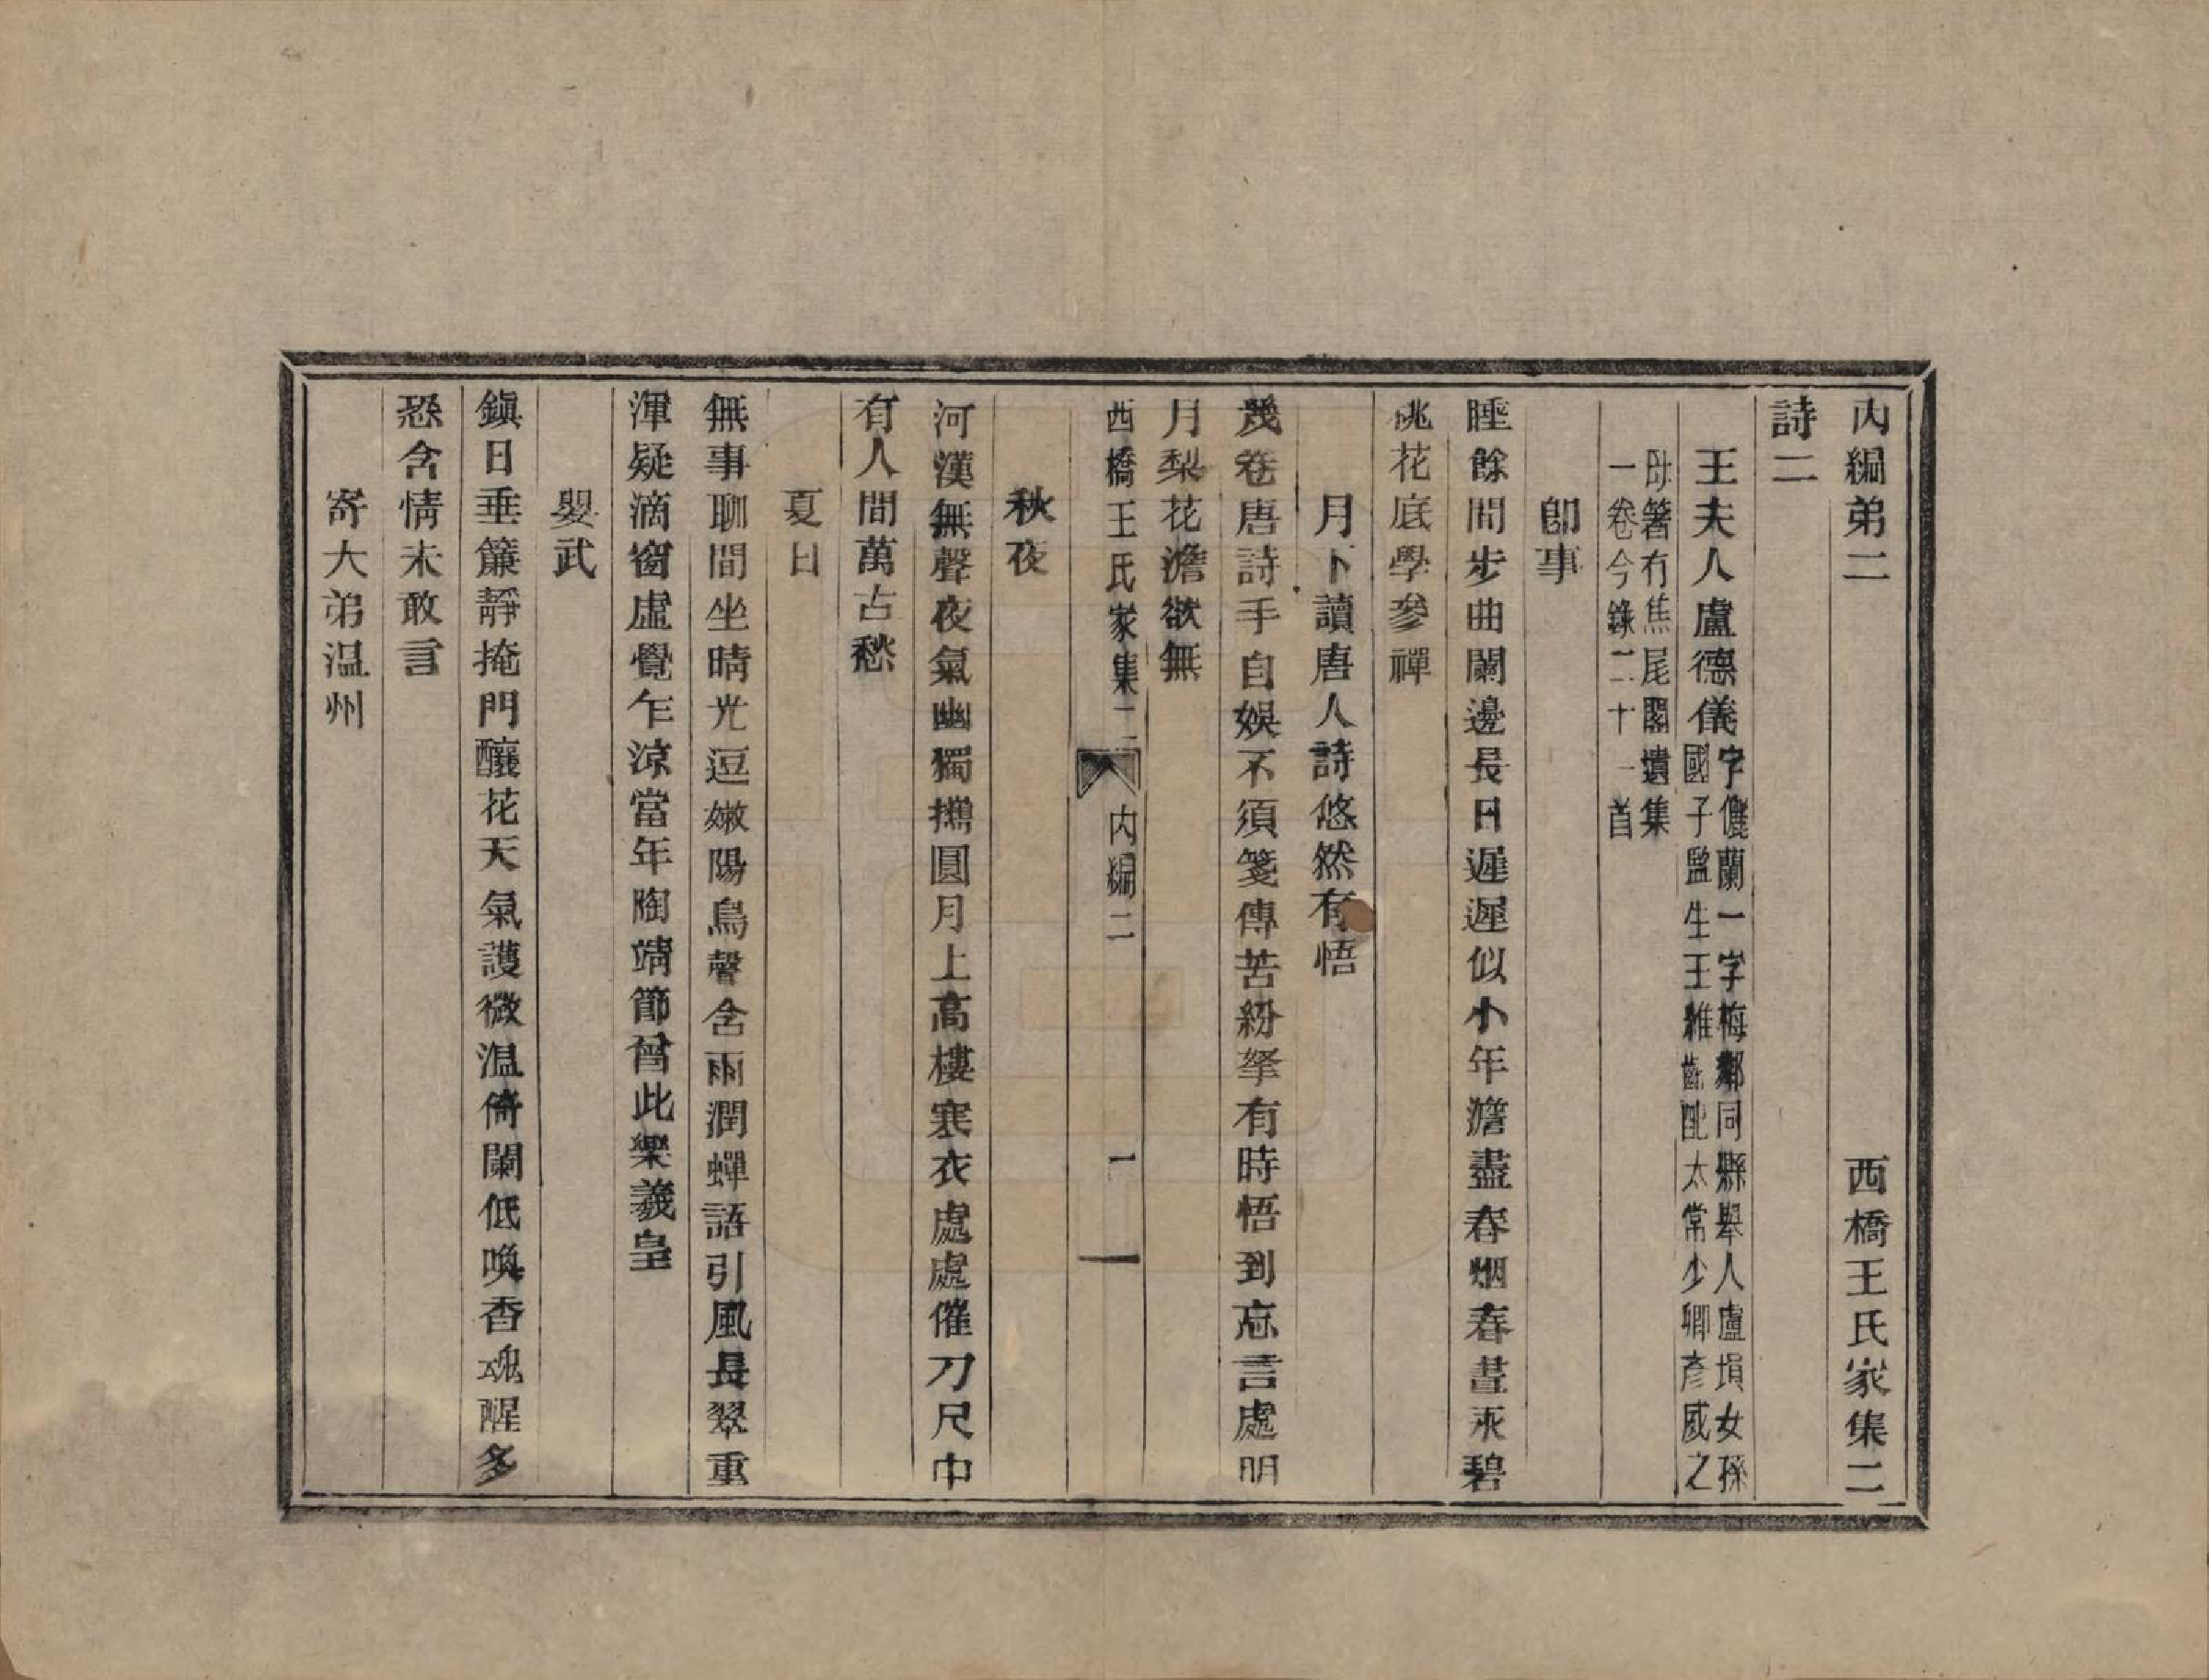 內編弟二　西橋王氏家集二
詩二
王夫人盧德儀字儷蘭一字梅鄰同縣舉人盧埧女孫
國子監生王維齡配太常少卿彥威之
母箸有焦尾閣遺集
一卷今錄二十一首
卽事
睡餘閒步曲闌邊長日遲遲似小年澹盡春烟春晝永碧
桃花底學參禪
月下讀唐人詩悠然有悟
幾卷唐詩手自娛不須箋傳苦紛拏有時悟到忘言處明
月梨花澹欲無
西橋王氏家集二　內編二　一
秋夜
河漢無聲夜氣幽獨攜圓月上高樓寒衣處處催刀尺中
有人間萬古愁
夏日
無事聊閒坐晴光逗嫩陽鳥聲含雨潤蟬語引風長翠重
渾疑滴窗虛覺乍涼當年陶靖節曾此樂羲皇
嬰武
鎭日垂簾靜掩門釀花天氣護微溫倚闌低喚香魂醒多
恐含情未敢言
寄大弟溫州